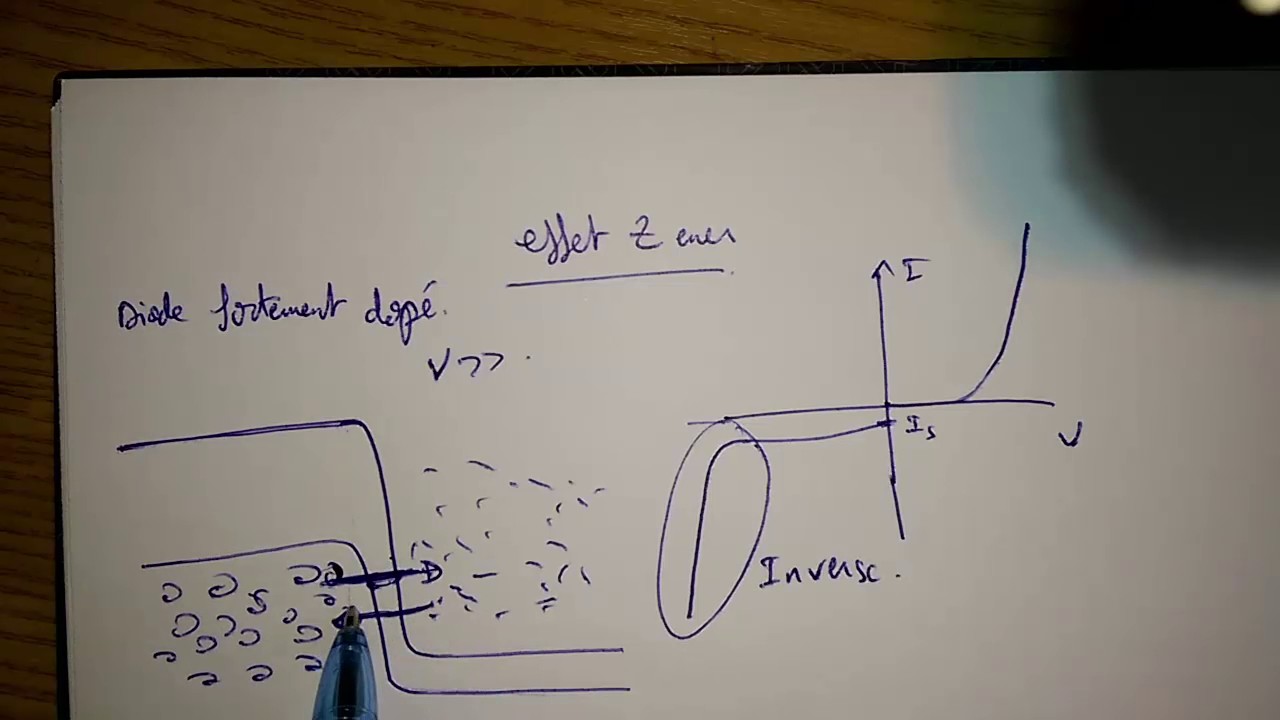 effet Zener
Diode fortement dopé.
V>>.
I
Is
V
Inverse.